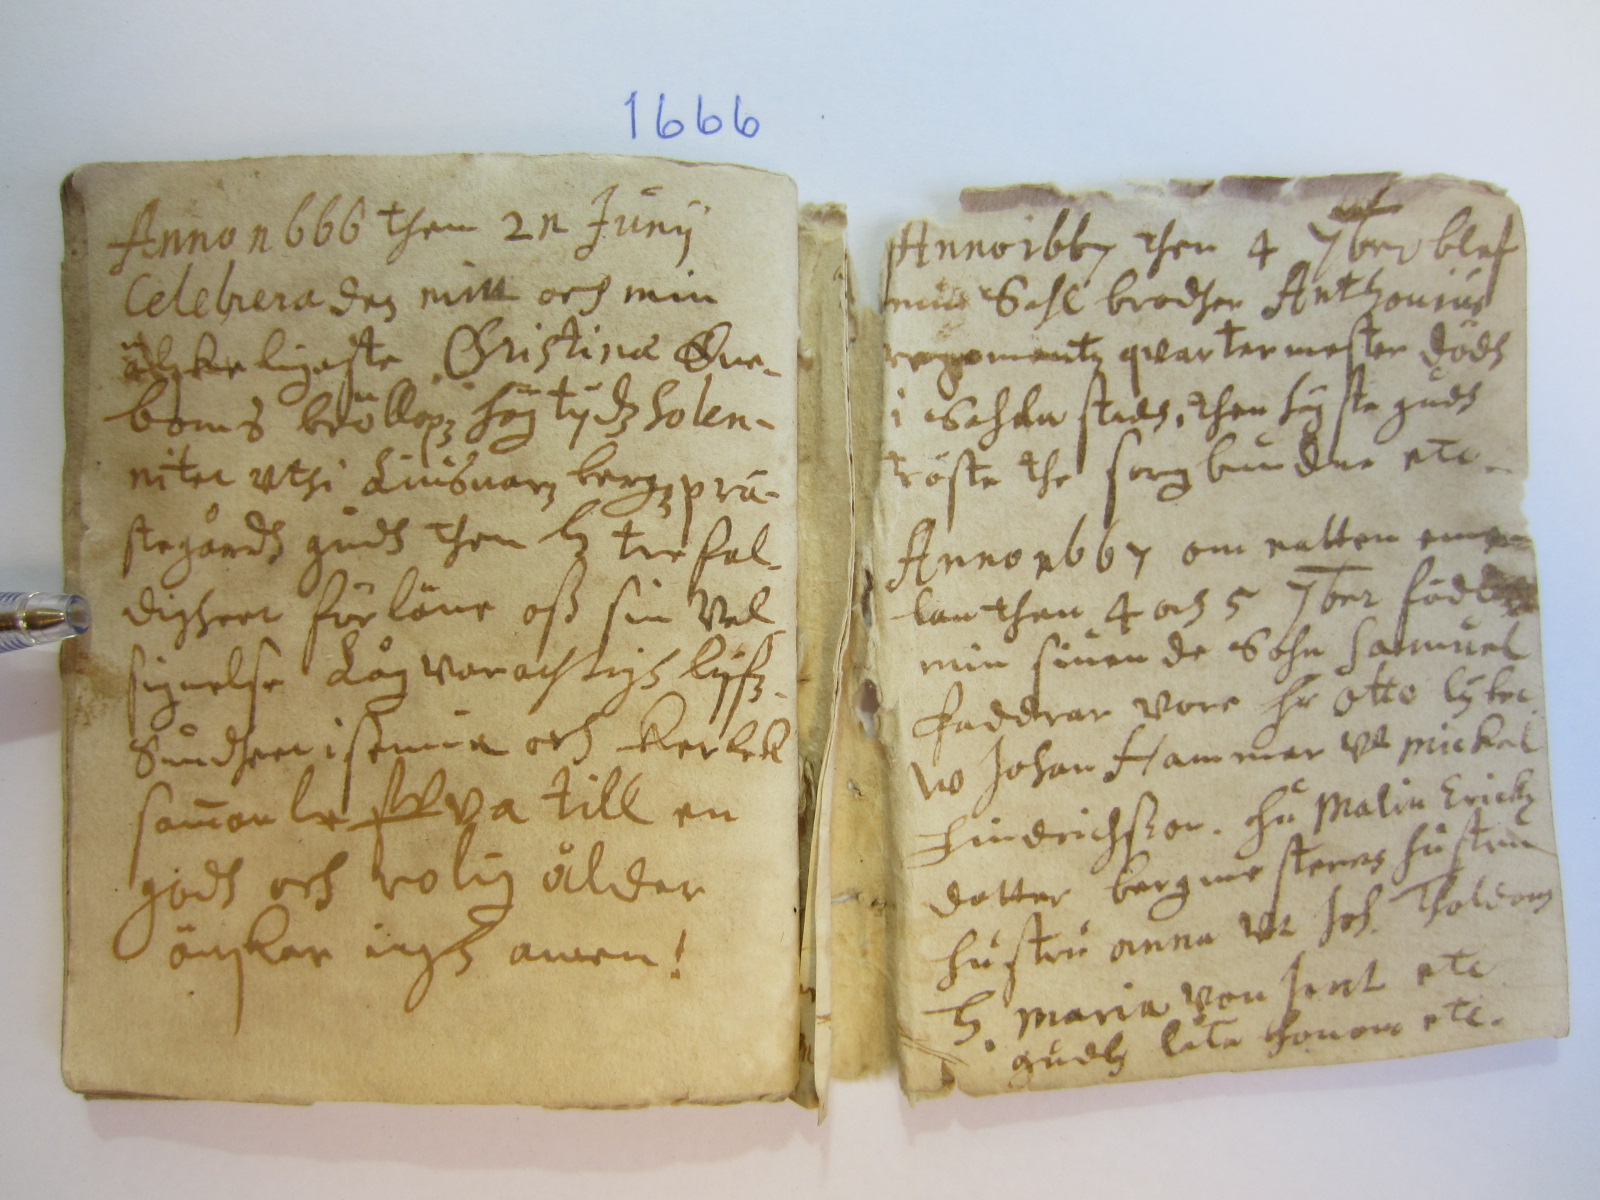 1666
Anno 1666 then 21 Junÿ
Celebreradez mitt och min
älskeligeste Christinæ Bue-
boms bröllopz högtÿdz Solen-
nitet vthi Liusnarz bergz prä-
stegårdh gudh then h trefal-
digheet förläne oss sin Vel
signelse Långvarachtigh lÿfz-
Sundheet isemia och Kerlek
samman lefva till en
godh och rolig ålder
önskar iagh amen!
Anno 1667 then 4 7ber blef
min Sahl brodher Anthonius
regementz quartermester dödh
i Sahla stadh, then högste gudh
tröste the sorgbundne etc.
Anno 1667 om natten emel
lan then 4 och 5 7ber födde
min siuende Sohn Samuel
faddrar vore hr Otto
w Johan Hammar w Mickel
Hindrichson. hu Malin Erichz
dotter bergmesterens hustru
hustru anna w Joh.
h. Maria von etc
gudh låte honom etc.